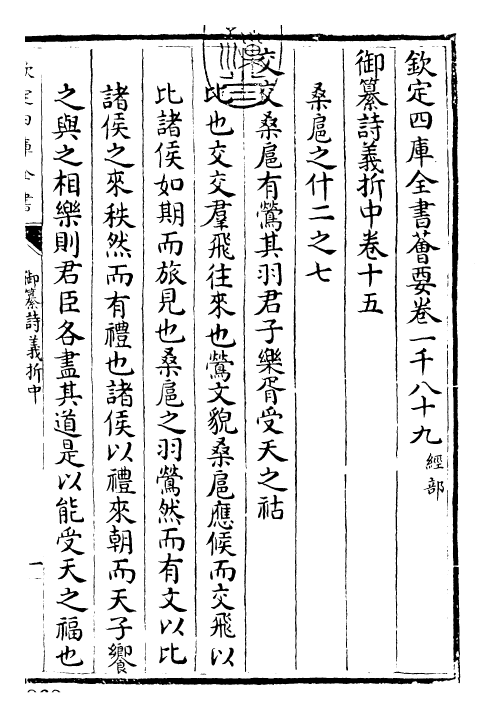 欽定四庫全書薈要卷一千八十九經部
御纂詩義折中卷十五
桑扈之什二之七
交交桑扈有鶯其羽君子樂胥受天之祜
比也交交羣飛往來也鶯文貌桑扈應候而交飛以
比諸侯如期而旅見也桑扈之羽鶯然而有文以比
諸侯之來秩然而有禮也諸侯以禮來朝而天子饗
之與之相樂則君臣各盡其道是以能受天之福也
欽定四庫全書
御纂詩義折中
一